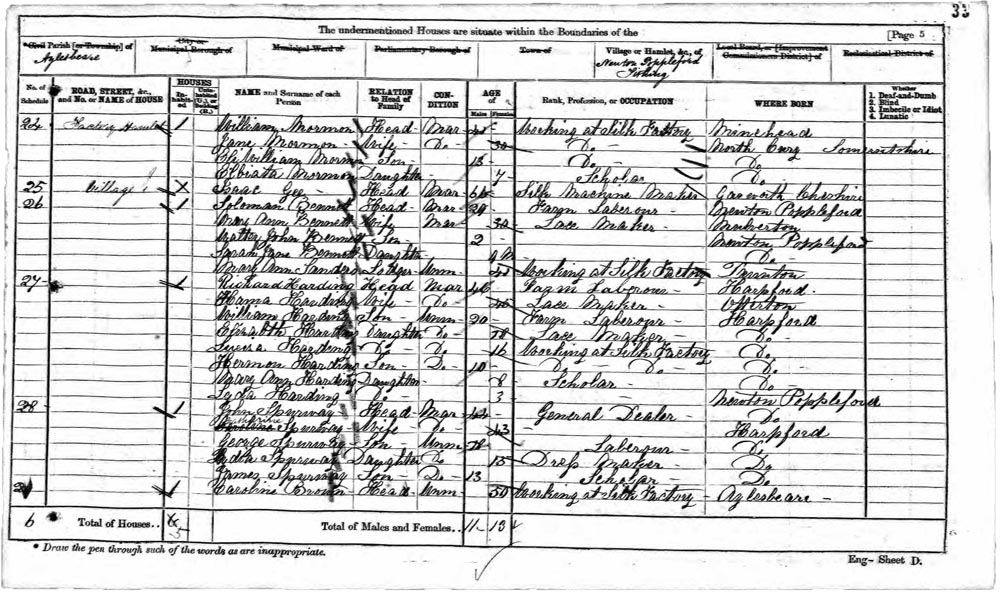 33
The undermentioned Houses are situate within the Boundaries of the [Page 5
Civil Parish [or Township] of City or Municipal Borough of Municipal Ward of Parliamentary Borough of Town of Village or Hamlet, &c., of Local Board, or [Improvement Commissioners District] of Ecclesiastical District of
Aylesbeare Newton Poppleford
No. of Schedule ROAD, STREET, &c., and No. or NAME of HOUSE HOUSES Inhabited Uninhabited (U.), or Building (B.) NAME and Surname of each Person RELATION to Head of Family CONDITION AGE of Males Females Rank, Profession, or OCCUPATION WHERE BORN Whether 1. Deaf-and-Dumb 2. Blind 3. Imbecile or Idiot 4. Lunatic
24 Factory Hamlet 1 William Mormon Head Mar Working at Silk Factory Minehead
Jane Mormon Wife Do Do North Curry Somersetshire
William Mormon Son 13 Do Do
Mormon Daughter 7 Scholar Do
25 Village Isaac Gee Head Mar 66 Silk Machine Maker Cheshire
26 1 Soloman Bennett Head Mar 29 Farm Laberour Newton Poppleford
Mary Ann Bennett Wife Mar 32 Lace Maker
Walter John Bennett Son 2 Newton Poppleford
Sarah Jane Bennett Daughter Do
Mary Ann Sanders Lodger Unm Working at Silk Factory Taunton
27 1 Richard Harding Head Mar 46 Farm Laberour Harpford
Harding Wife Do 46 Lace Maker Otterton
William Harding Son Unm 20 Farm Laberour Harpford
Elizabeth Harding Daughter Do 18 Lace Maker Do
Harding Do Do 16 Working at Silk Factory Do
Hermon Harding Son Do 10 Do Do Do
Mary Ann Harding Daughter 8 Scholar Do
Lydia Harding Do 3 Newton Poppleford
28 1 John Spurway Head Mar General Dealer Do
Spurway Wife Do 43 Harpford
George Spurway Son Unm 18 Laberour Do
Spurway Daughter Do 15 Dress Maker Do
James Spurway Son Do 13 Scholar Do
1 Caroline Brown Head Unm 50 Working at Silk Factory Aylesbeare
6 Total of Houses.. 5 Total of Males and Females.. 11 13
* Draw the pen through such of the words as are inappropriate.
Eng- Sheet D.